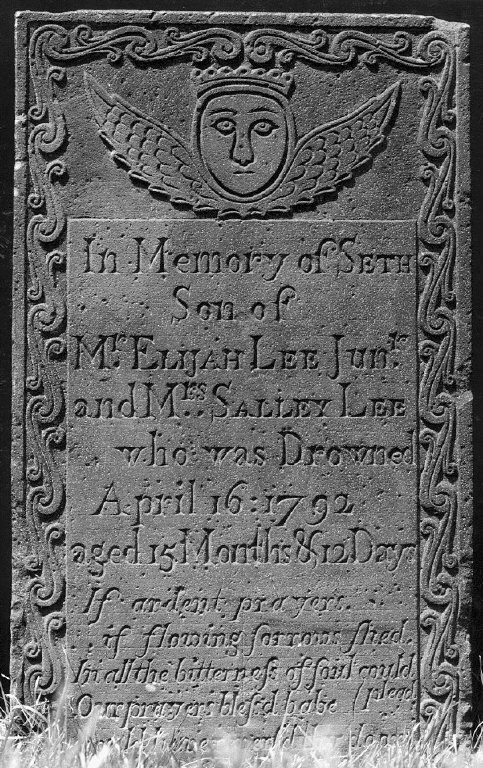 In Memory of SETH
Son of
Mr. ELIJAH LEE Junr.
and Mrs. SALLEY LEE
who was Drowned
April 16: 1792
aged 15 Months & 12 Days
If ardent prayers.
if flowing ſorrows ſhed.
In all the bitterneſs of ſoul could
(plead
Our prayers bleſs'd babe